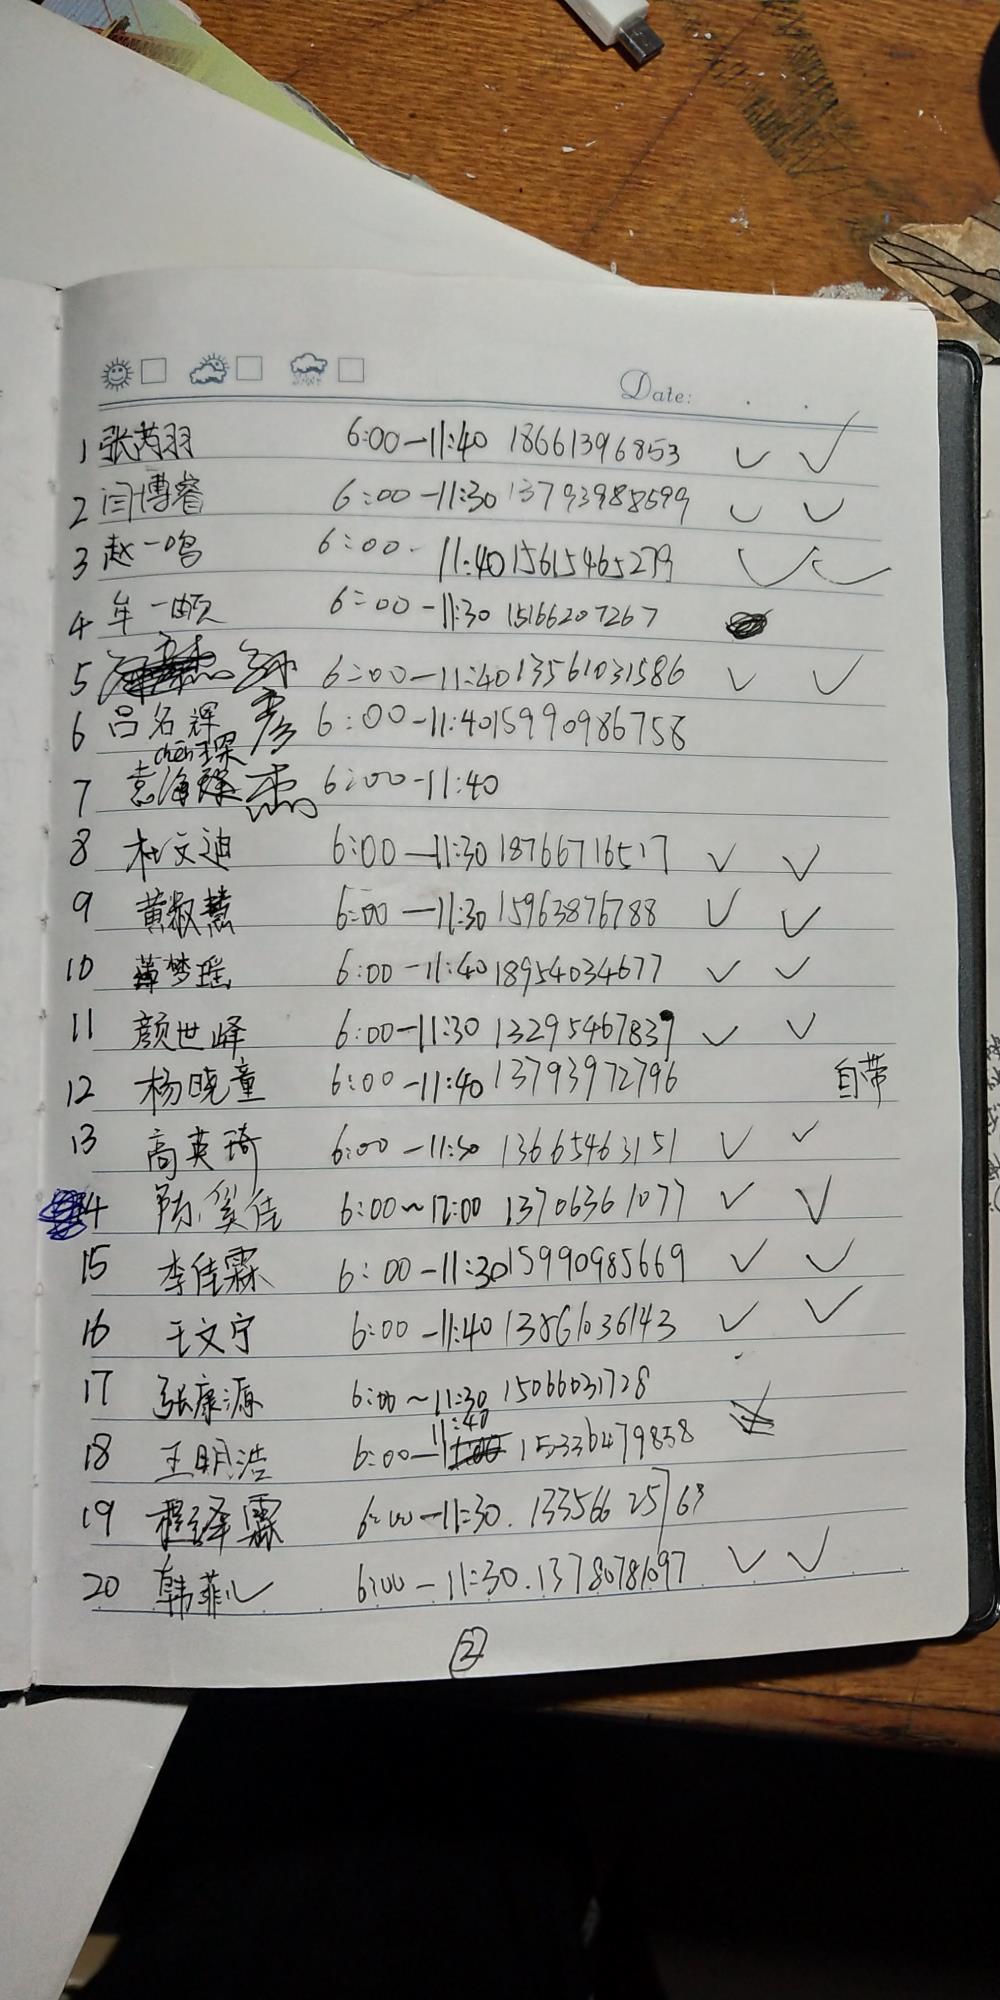 Date:
1 张芮羽 6:00—11:40 18661396853 ✓ ✓
2 闫博睿 6:00—11:30 13793988599 ✓ ✓
3 赵一鸣 6:00- 11:40 15615465279 ✓ ✓
4 牟一顺 6:00—11:30 15166207267
5 6:00—11:40 13561031586 ✓ ✓
6 吕名辉 6:00—11:40 15990986758
chēn 琛
7 袁海 6:00—11:40
8 杜文迪 6:00—11:30 18766716517 ✓ ✓
9 黄淑慧 6:00—11:30 15963876788 ✓ ✓
10 梦瑶 6:00—11:40 18954034677 ✓ ✓
11 颜世峰 6:00—11:30 13295467839 ✓ ✓
12 杨晓童 6:00—11:40 13793972796 自带
13 高英琦 6:00—11:30 13665463151 ✓ ✓
14 陈奚佳 6:00~12:00 13706361077 ✓ ✓
15 李佳霖 6:00—11:30 15990985669 ✓ ✓
16 王文宁 6:00—11:40 13861036143 ✓ ✓
17 张康源 6:00~11:30 15066031728
18 王明浩 6:00—11:40 15336479858
19 程泽霖 6:00—11:30. 13356625763
20 韩菲儿 6:00—11:30. 13780781097 ✓ ✓
②